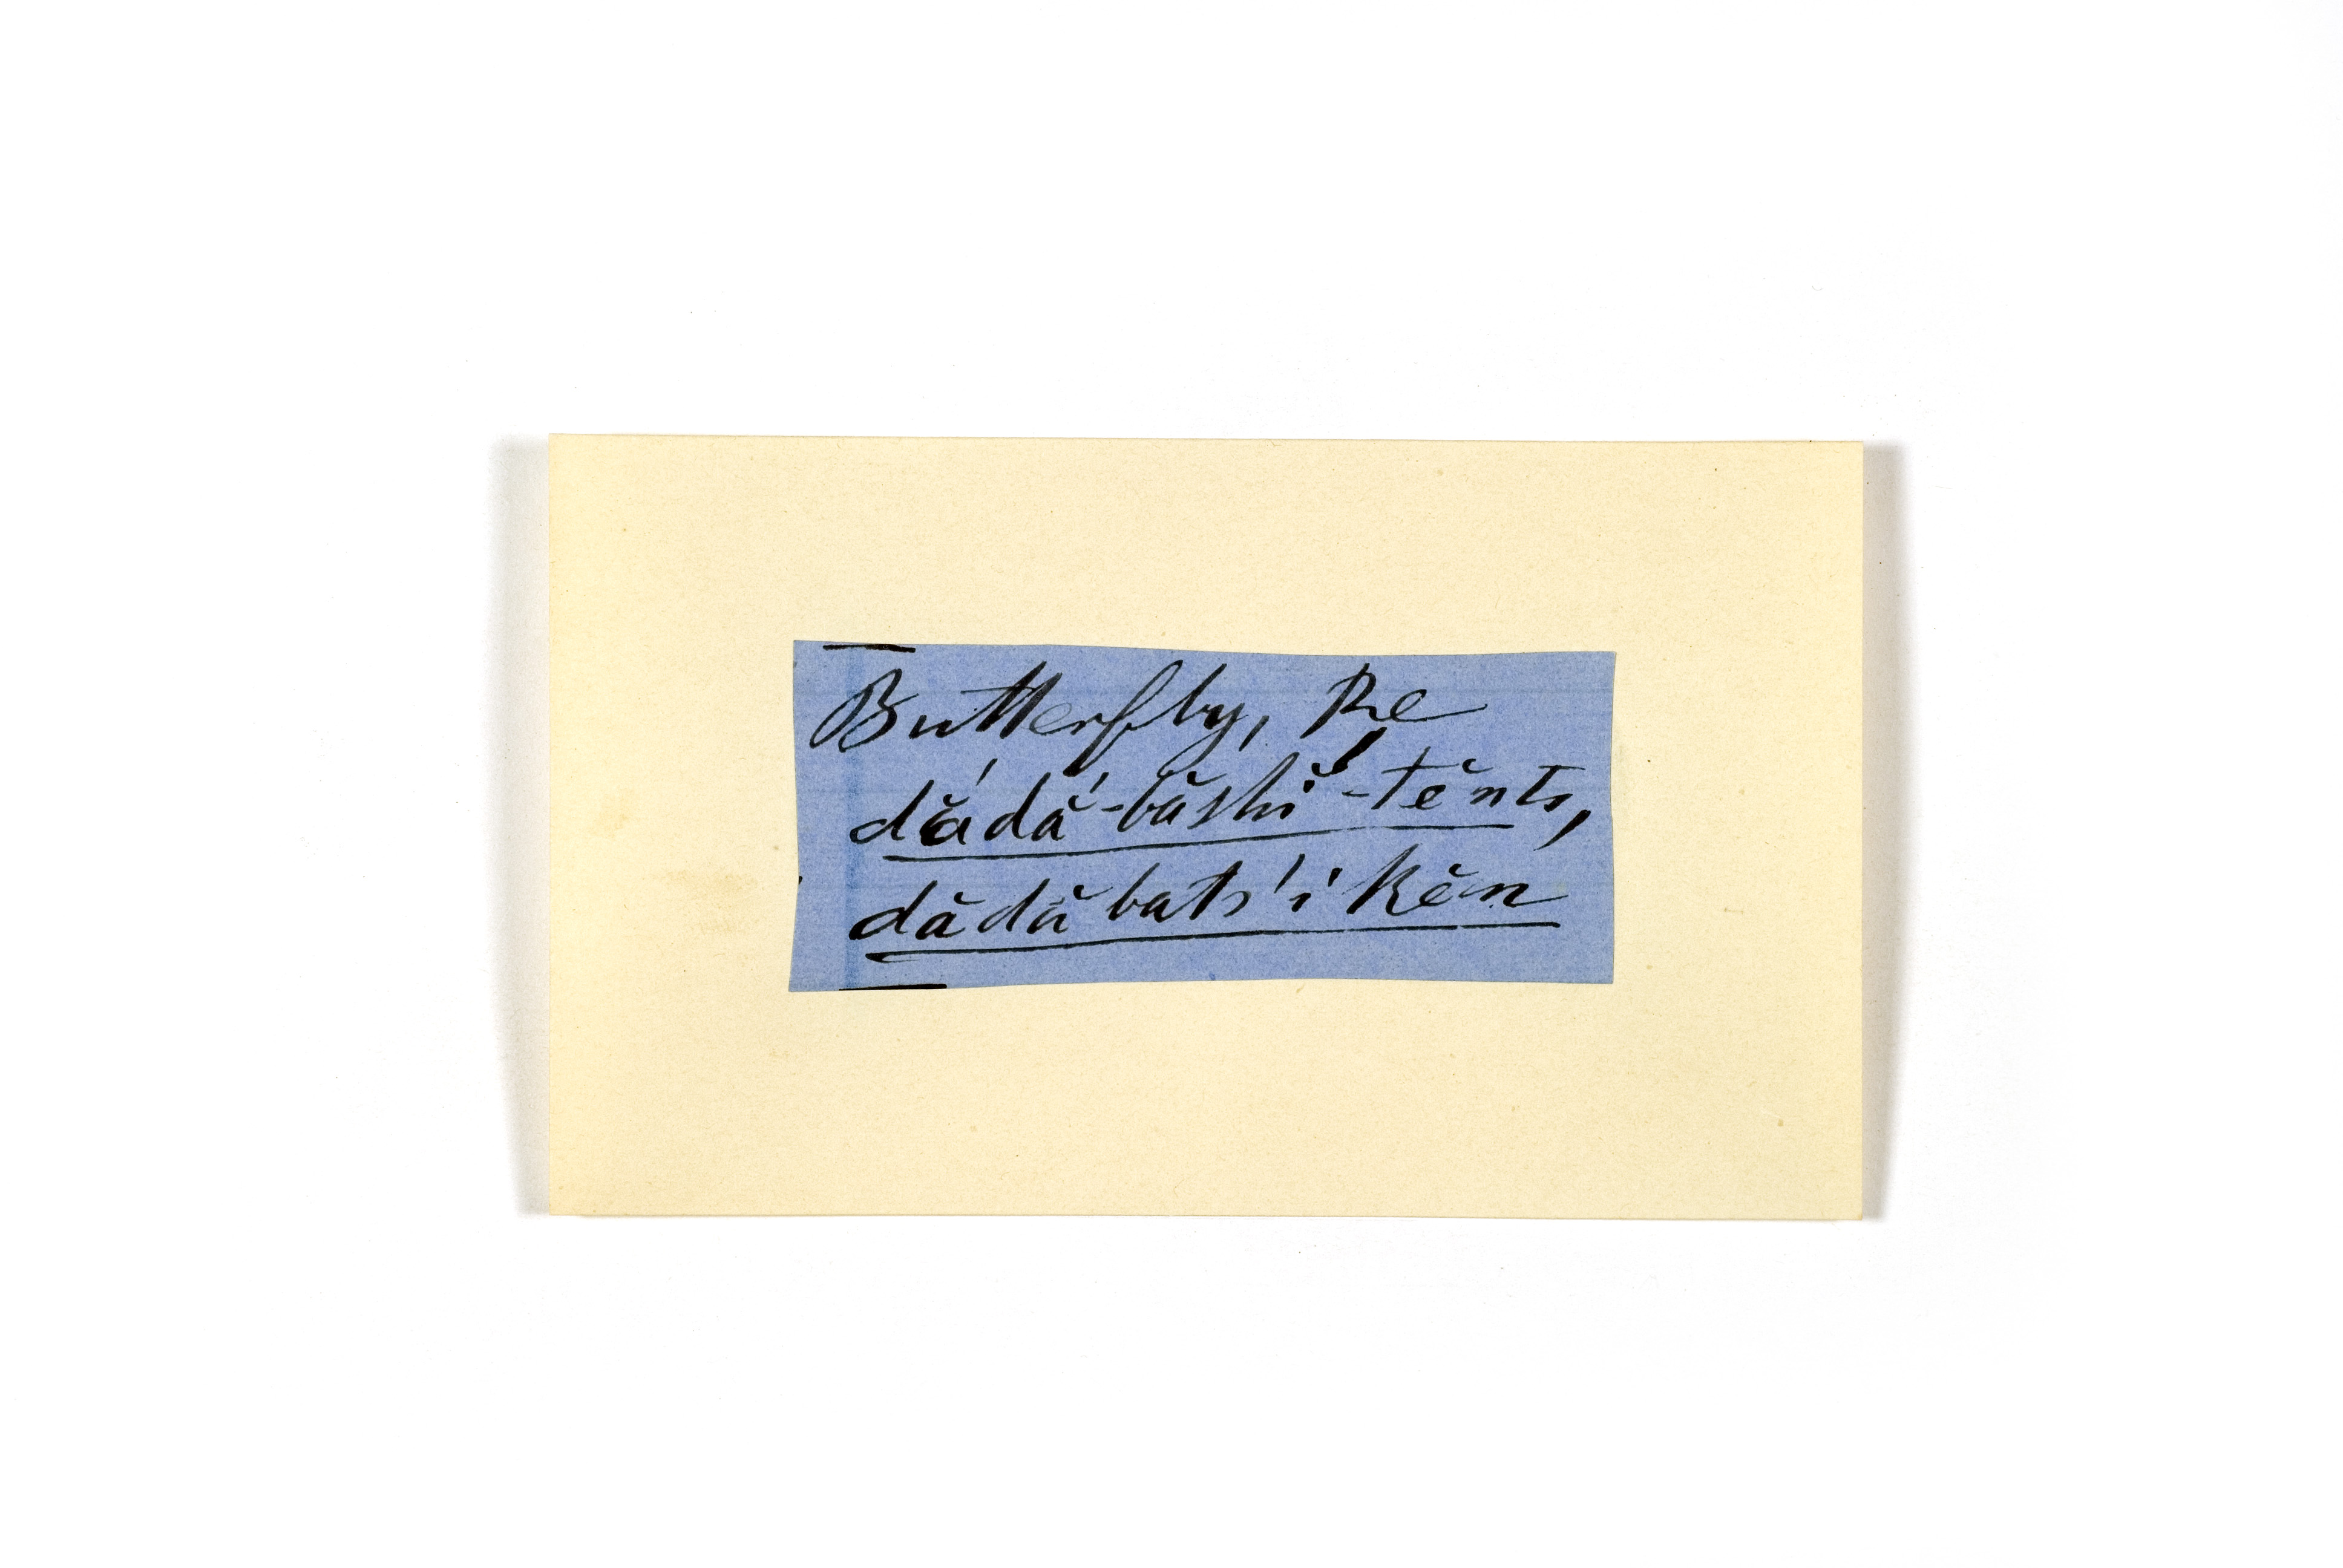 Butterfly, Re
dắdắ-băshĭ́-tĕnts,
dădăbats'i'kĕn